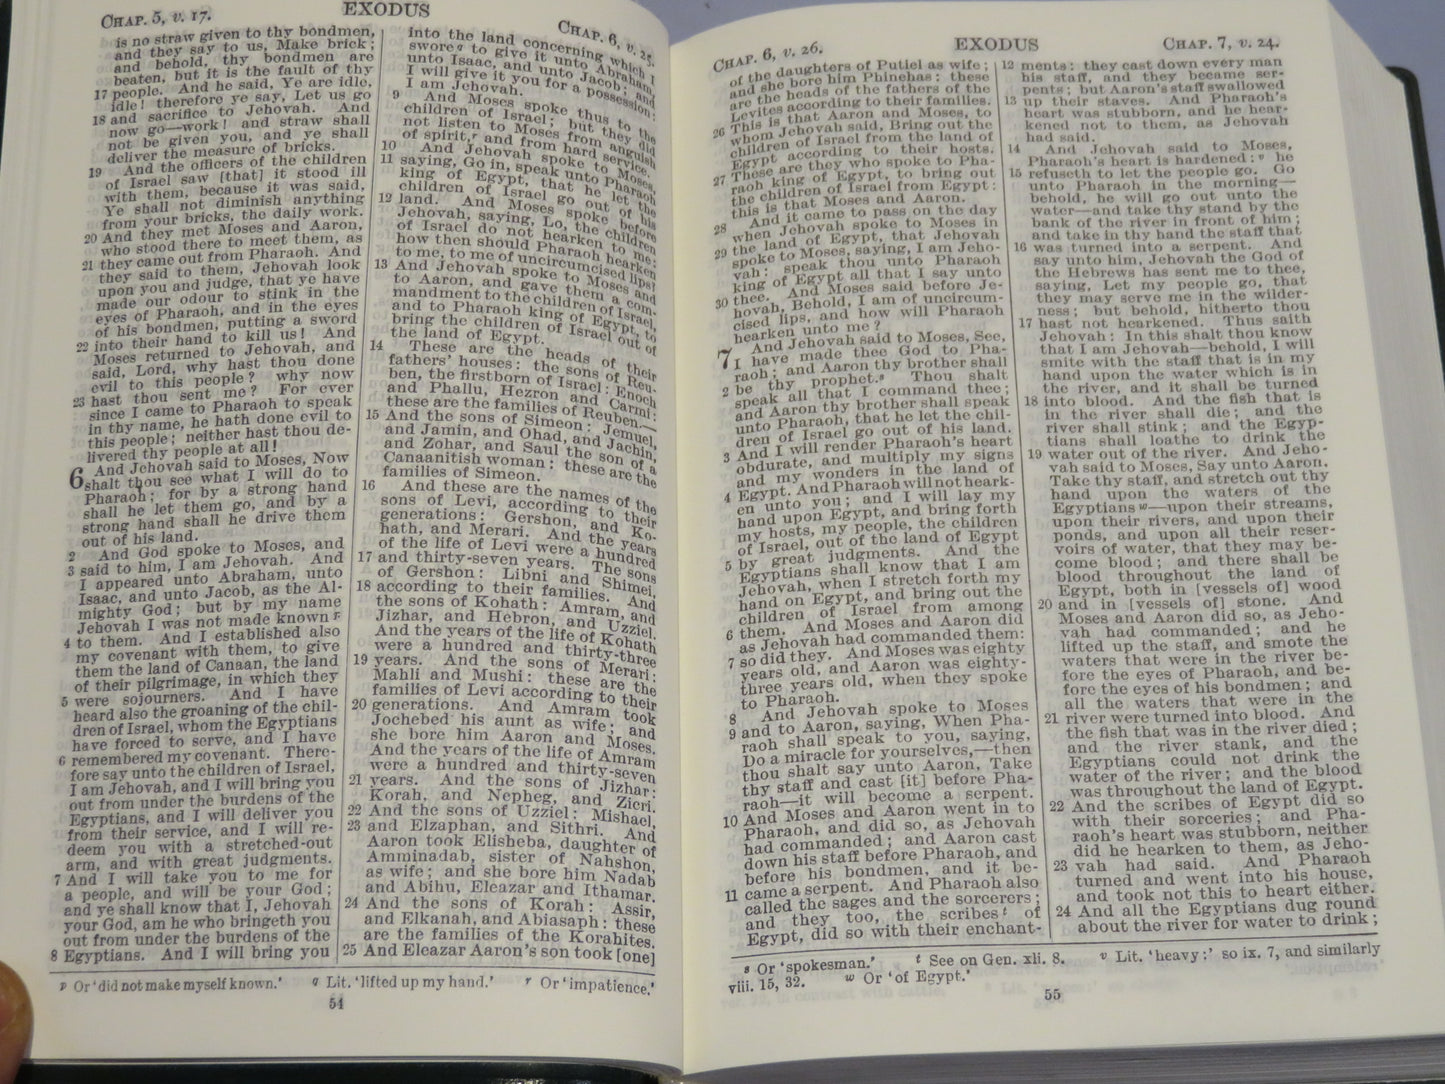 CHAP. 5, v. 17.
EXODUS
CHAP. 6, v. 25.
is no straw given to thy bondmen,
and they say to us, Make brick;
and behold, thy bondmen are
beaten, but it is the fault of thy
17 people. And he said, Ye are idle,
idle! therefore ye say, Let us go
18 and sacrifice to Jehovah. And
now go—work! and straw shall
not be given you, and ye shall
deliver the measure of bricks.
19 And the officers of the children
of Israel saw [that] it stood ill
with them, because it was said,
Ye shall not diminish anything
from your bricks, the daily work.
20 And they met Moses and Aaron,
who stood there to meet them, as
21 they came out from Pharaoh. And
they said to them, Jehovah look
upon you and judge, that ye have
made our odour to stink in the
eyes of Pharaoh, and in the eyes
of his bondmen, putting a sword
22 into their hand to kill us! And
Moses returned to Jehovah, and
said, Lord, why hast thou done
evil to this people? why now
23 hast thou sent me? For ever
since I came to Pharaoh to speak
in thy name, he hath done evil to
this people; neither hast thou de-
livered thy people at all!
6 And Jehovah said to Moses, Now
shalt thou see what I will do to
Pharaoh; for by a strong hand
shall he let them go, and by a
strong hand shall he drive them
out of his land.
2 And God spoke to Moses, and
3 said to him, I am Jehovah. And
I appeared unto Abraham, unto
Isaac, and unto Jacob, as the Al-
mighty God; but by my name
Jehovah I was not made known p
4 to them. And I established also
my covenant with them, to give
them the land of Canaan, the land
of their pilgrimage, in which they
5 were sojourners. And I have
heard also the groaning of the chil-
dren of Israel, whom the Egyptians
have forced to serve, and I have
6 remembered my covenant. There-
fore say unto the children of Israel,
I am Jehovah, and I will bring you
out from under the burdens of the
Egyptians, and I will deliver you
from their service, and I will re-
deem you with a stretched-out
arm, and with great judgments.
7 And I will take you to me for
a people, and will be your God;
and ye shall know that I, Jehovah
your God, am he who bringeth you
out from under the burdens of the
8 Egyptians. And I will bring you
into the land concerning which I
swore q to give it unto Abraham,
unto Isaac, and unto Jacob; and
I will give it you for a possession:
I am Jehovah.
9 And Moses spoke thus to the
children of Israel; but they did
not listen to Moses from anguish
of spirit, r and from hard service.
10 And Jehovah spoke to Moses,
11 saying, Go in, speak unto Pharaoh
king of Egypt, that he let the
children of Israel go out of his
12 land. And Moses spoke before
Jehovah, saying, Lo, the children
of Israel do not hearken to me:
how then should Pharaoh hearken
to me, to me of uncircumcised lips?
13 And Jehovah spoke to Moses and
to Aaron, and gave them a com-
mandment to the children of Israel,
and to Pharaoh king of Egypt, to
bring the children of Israel out of
the land of Egypt.
14 These are the heads of their
fathers' houses: the sons of Reu-
ben, the firstborn of Israel: Enoch
and Phallu, Hezron and Carmi:
these are the families of Reuben.—
15 And the sons of Simeon: Jemuel,
and Jamin, and Ohad, and Jachin,
and Zohar, and Saul the son of a
Canaanitish woman: these are the
families of Simeon.
16 And these are the names of the
sons of Levi, according to their
generations: Gershon, and Ko-
hath, and Merari. And the years
of the life of Levi were a hundred
17 and thirty-seven years. The sons
of Gershon: Libni and Shimei,
18 according to their families. And
the sons of Kohath: Amram, and
Jizhar, and Hebron, and Uzziel.
And the years of the life of Kohath
were a hundred and thirty-three
19 years. And the sons of Merari:
Mahli and Mushi: these are the
families of Levi according to their
20 generations. And Amram took
Jochebed his aunt as wife; and
she bore him Aaron and Moses.
And the years of the life of Amram
were a hundred and thirty-seven
21 years. And the sons of Jizhar:
Korah, and Nepheg, and Zicri.
22 And the sons of Uzziel: Mishael,
23 and Elzaphan, and Sithri. And
Aaron took Elisheba, daughter of
Amminadab, sister of Nahshon,
as wife; and she bore him Nadab
and Abihu, Eleazar and Ithamar.
24 And the sons of Korah: Assir,
and Elkanah, and Abiasaph: these
are the families of the Korahites.
25 And Eleazar Aaron's son took [one]
p Or 'did not make myself known.' q Lit. 'lifted up my hand.' r Or 'impatience.'
54
CHAP. 6, v. 26.
EXODUS
CHAP. 7, v. 24.
of the daughters of Putiel as wife;
and she bore him Phinehas: these
are the heads of the fathers of the
Levites according to their families.
26 This is that Aaron and Moses, to
whom Jehovah said, Bring out the
children of Israel from the land of
Egypt according to their hosts.
27 These are they who spoke to Pha-
raoh king of Egypt, to bring out
the children of Israel from Egypt:
this is that Moses and Aaron.
28 And it came to pass on the day
when Jehovah spoke to Moses in
29 the land of Egypt, that Jehovah
spoke to Moses, saying, I am Jeho-
vah: speak thou unto Pharaoh
king of Egypt all that I say unto
30 thee. And Moses said before Je-
hovah, Behold, I am of uncircum-
cised lips, and how will Pharaoh
hearken unto me?
7 And Jehovah said to Moses, See,
I have made thee God to Pha-
raoh; and Aaron thy brother shall
2 be thy prophet. s Thou shalt
speak all that I command thee;
and Aaron thy brother shall speak
unto Pharaoh, that he let the chil-
dren of Israel go out of his land.
3 And I will render Pharaoh's heart
obdurate, and multiply my signs
and my wonders in the land of
4 Egypt. And Pharaoh will not heark-
en unto you; and I will lay my
hand upon Egypt, and bring forth
my hosts, my people, the children
of Israel, out of the land of Egypt
5 by great judgments. And the
Egyptians shall know that I am
Jehovah, when I stretch forth my
hand on Egypt, and bring out the
children of Israel from among
6 them. And Moses and Aaron did
as Jehovah had commanded them:
7 so did they. And Moses was eighty
years old, and Aaron was eighty-
three years old, when they spoke
to Pharaoh.
8 And Jehovah spoke to Moses
9 and to Aaron, saying, When Pha-
raoh shall speak to you, saying,
Do a miracle for yourselves,—then
thou shalt say unto Aaron, Take
thy staff and cast [it] before Pha-
raoh—it will become a serpent.
10 And Moses and Aaron went in to
Pharaoh, and did so, as Jehovah
had commanded; and Aaron cast
down his staff before Pharaoh, and
before his bondmen, and it be-
11 came a serpent. And Pharaoh also
called the sages and the sorcerers;
and they too, the scribes t of
Egypt, did so with their enchant-
12 ments: they cast down every man
his staff, and they became ser-
pents; but Aaron's staff swallowed
13 up their staves. And Pharaoh's
heart was stubborn, and he hear-
kened not to them, as Jehovah
had said.
14 And Jehovah said to Moses,
Pharaoh's heart is hardened: v he
15 refuseth to let the people go. Go
unto Pharaoh in the morning—
behold, he will go out unto the
water—and take thy stand by the
bank of the river in front of him;
and take in thy hand the staff that
16 was turned into a serpent. And
say unto him, Jehovah the God of
the Hebrews has sent me to thee,
saying, Let my people go, that
they may serve me in the wilder-
ness; but behold, hitherto thou
17 hast not hearkened. Thus saith
Jehovah: In this shalt thou know
that I am Jehovah—behold, I will
smite with the staff that is in my
hand upon the water which is in
the river, and it shall be turned
18 into blood. And the fish that is
in the river shall die; and the
river shall stink; and the Egyp-
tians shall loathe to drink the
19 water out of the river. And Jeho-
vah said to Moses, Say unto Aaron,
Take thy staff, and stretch out thy
hand upon the waters of the
Egyptians w—upon their streams,
upon their rivers, and upon their
ponds, and upon all their reser-
voirs of water, that they may be-
come blood; and there shall be
blood throughout the land of
Egypt, both in [vessels of] wood
20 and in [vessels of] stone. And
Moses and Aaron did so, as Jeho-
vah had commanded; and he
lifted up the staff, and smote the
waters that were in the river be-
fore the eyes of Pharaoh, and be-
fore the eyes of his bondmen; and
all the waters that were in the
21 river were turned into blood. And
the fish that was in the river died;
and the river stank, and the
Egyptians could not drink the
water of the river; and the blood
was throughout the land of Egypt.
22 And the scribes of Egypt did so
with their sorceries; and Pha-
raoh's heart was stubborn, neither
did he hearken to them, as Jeho-
23 vah had said. And Pharaoh
turned and went into his house,
and took not this to heart either.
24 And all the Egyptians dug round
about the river for water to drink;
s Or 'spokesman.' t See on Gen. xli. 8. v Lit. 'heavy;' so ix. 7, and similarly
viii. 15, 32. w Or 'of Egypt.'
55